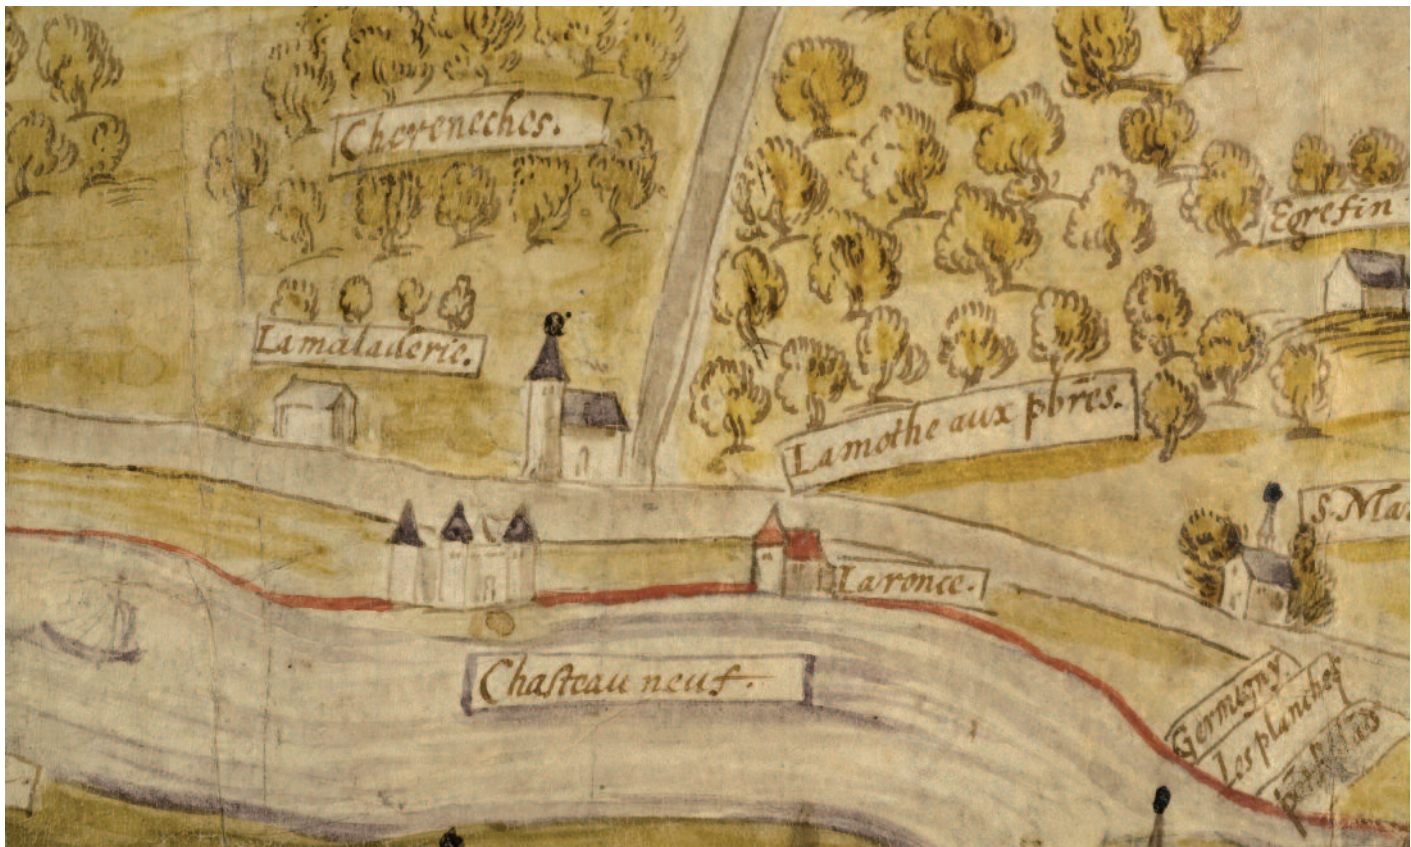 Chereneches.
Egrefin
Lamaladerie.
Lamothe aux pbr̃es.
S. Mar
Laronce.
Chaſteau neuf.
Germigny.
Les planches